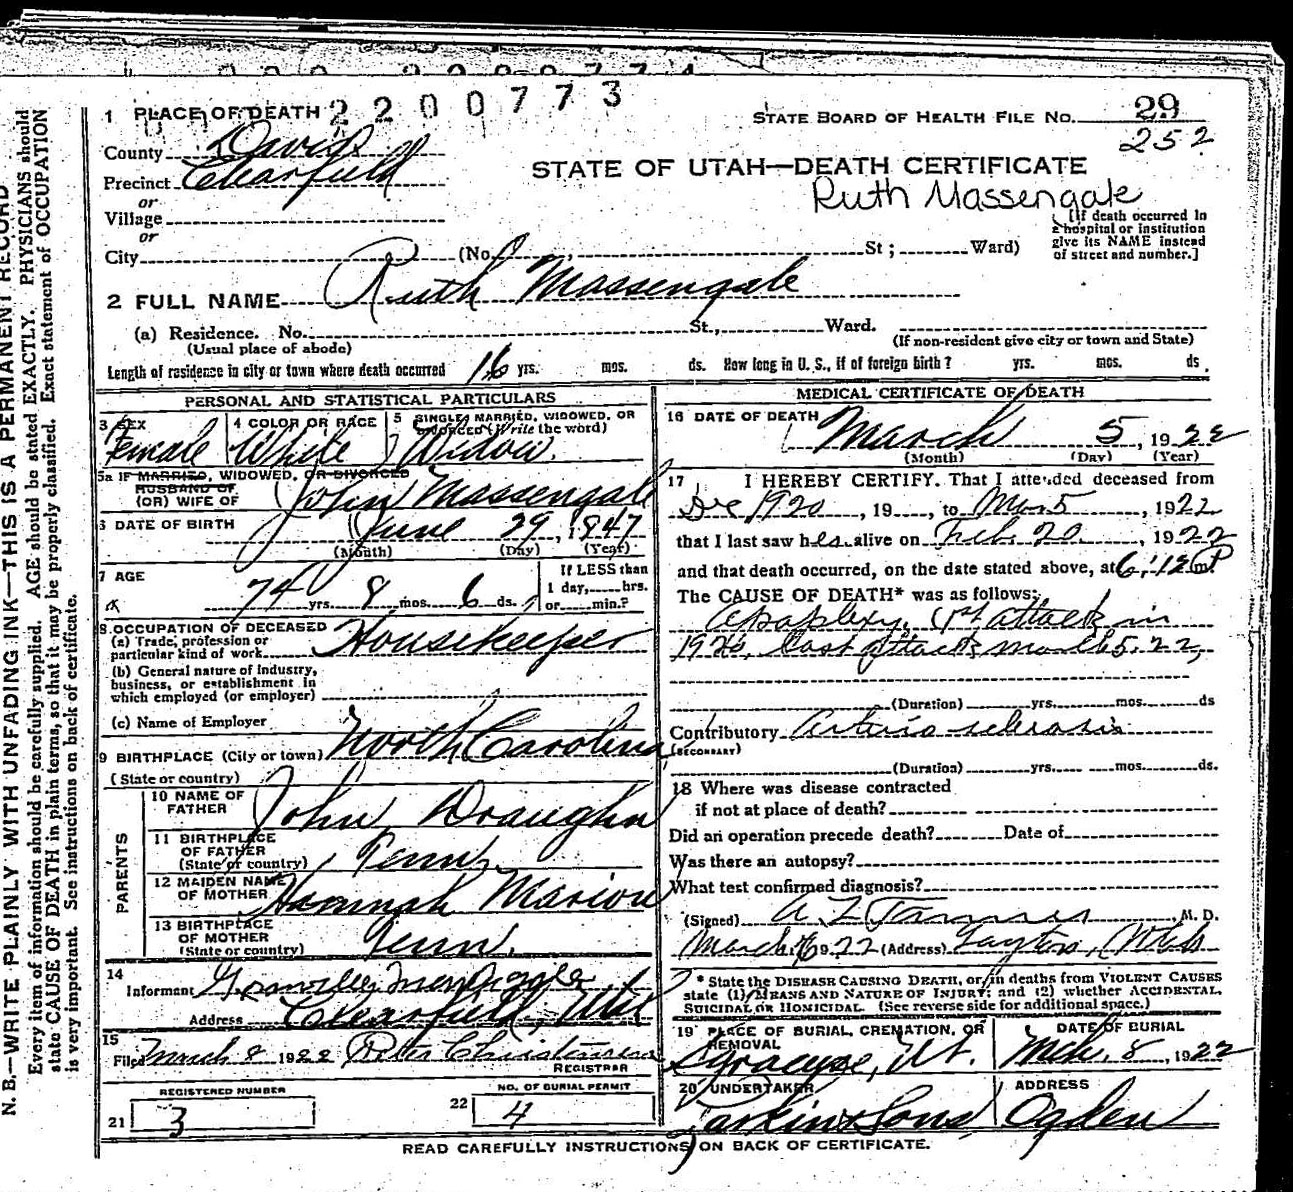 2200773
1 PLACE OF DEATH
STATE BOARD OF HEALTH FILE No. 29
252
County Davis
Precinct Clearfield
or
Village
or
City (No. St; Ward)
STATE OF UTAH—DEATH CERTIFICATE
Ruth Massengale
[If death occurred in a hospital or institution give its NAME instead of street and number.]
2 FULL NAME Ruth Massengale
(a) Residence. No. St., Ward.
(Usual place of abode) (If non-resident give city or town and State)
Length of residence in city or town where death occurred 16 yrs. mos. ds. How long in U. S., if of foreign birth? yrs. mos. ds.
PERSONAL AND STATISTICAL PARTICULARS
3 SEX Female
4 COLOR OR RACE White
5 SINGLE, MARRIED, WIDOWED, OR DIVORCED (Write the word) Widow.
5a IF MARRIED, WIDOWED, OR DIVORCED
HUSBAND OF
(OR) WIFE OF John Massengale
6 DATE OF BIRTH June 29, 1847
(Month) (Day) (Year)
7 AGE 74 yrs. 8 mos. 6 ds.
If LESS than 1 day, hrs. or min.?
8 OCCUPATION OF DECEASED
(a) Trade, profession or particular kind of work Housekeeper
(b) General nature of industry, business, or establishment in which employed (or employer)
(c) Name of Employer
9 BIRTHPLACE (City or town) North Carolina
(State or country)
PARENTS
10 NAME OF FATHER John Draughn
11 BIRTHPLACE OF FATHER (State or country) Tenn.
12 MAIDEN NAME OF MOTHER Hannah Marion
13 BIRTHPLACE OF MOTHER (State or country) Tenn.
14 Informant
Address Clearfield, Utah
15 Filed March 8 1922 Peter Christensen
REGISTRAR
21 REGISTERED NUMBER 3
22 NO. OF BURIAL PERMIT 4
MEDICAL CERTIFICATE OF DEATH
16 DATE OF DEATH March 5, 1922
(Month) (Day) (Year)
17 I HEREBY CERTIFY. That I attended deceased from
Dec 1920, 19 , to Mar 5, 1922
that I last saw her alive on Feb. 20, 1922
and that death occurred, on the date stated above, at 6:12 P m
The CAUSE OF DEATH* was as follows:
Apoplexy, 1st attack in
1920, last attack March 5. 22,
(Duration) yrs. mos. ds
Contributory Arterio sclerosis
(SECONDARY)
(Duration) yrs. mos. ds.
18 Where was disease contracted
if not at place of death?
Did an operation precede death? Date of
Was there an autopsy?
What test confirmed diagnosis?
(Signed) A Z Tanner, M. D.
March 6 1922 (Address) Layton, Utah
* State the DISEASE CAUSING DEATH, or, in deaths from VIOLENT CAUSES state (1) MEANS AND NATURE OF INJURY; and (2) whether ACCIDENTAL, SUICIDAL OR HOMICIDAL. (See reverse side for additional space.)
19 PLACE OF BURIAL, CREMATION, OR REMOVAL Syracuse, Ut.
DATE OF BURIAL Mch. 8, 1922
20 UNDERTAKER Larkin & Sons
ADDRESS Ogden
READ CAREFULLY INSTRUCTIONS ON BACK OF CERTIFICATE.
N. B.—WRITE PLAINLY WITH UNFADING INK—THIS IS A PERMANENT RECORD
Every item of information should be carefully supplied. AGE should be stated EXACTLY. PHYSICIANS should
state CAUSE OF DEATH in plain terms, so that it may be properly classified. Exact statement of OCCUPATION
is very important. See instructions on back of certificate.